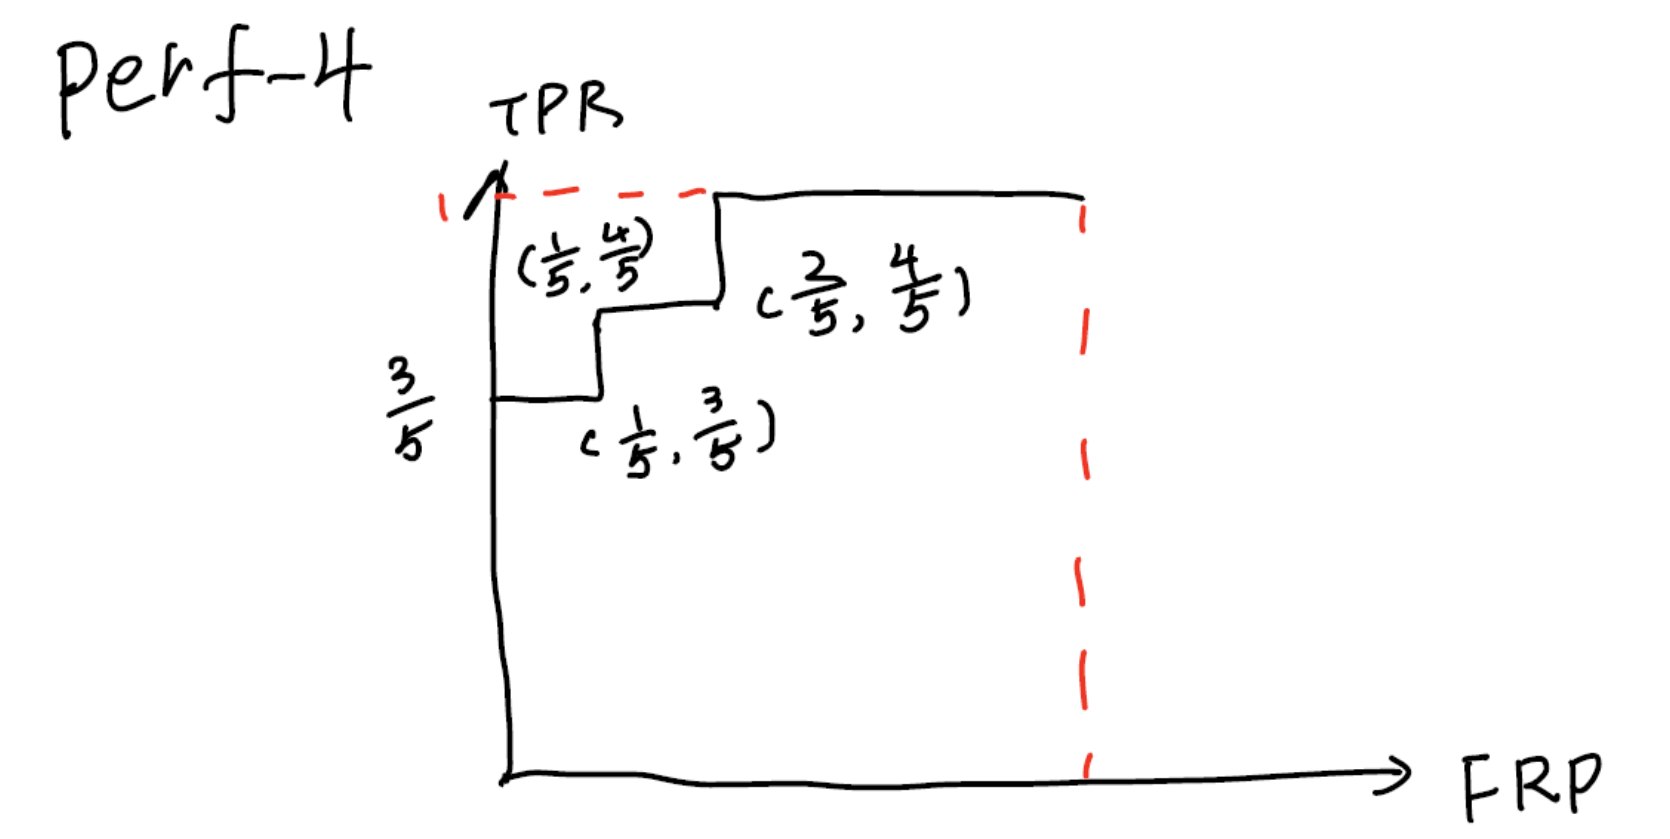 perf-4
TPR
1
(1/5, 4/5)
(2/5, 4/5)
3/5
(1/5, 3/5)
FRP